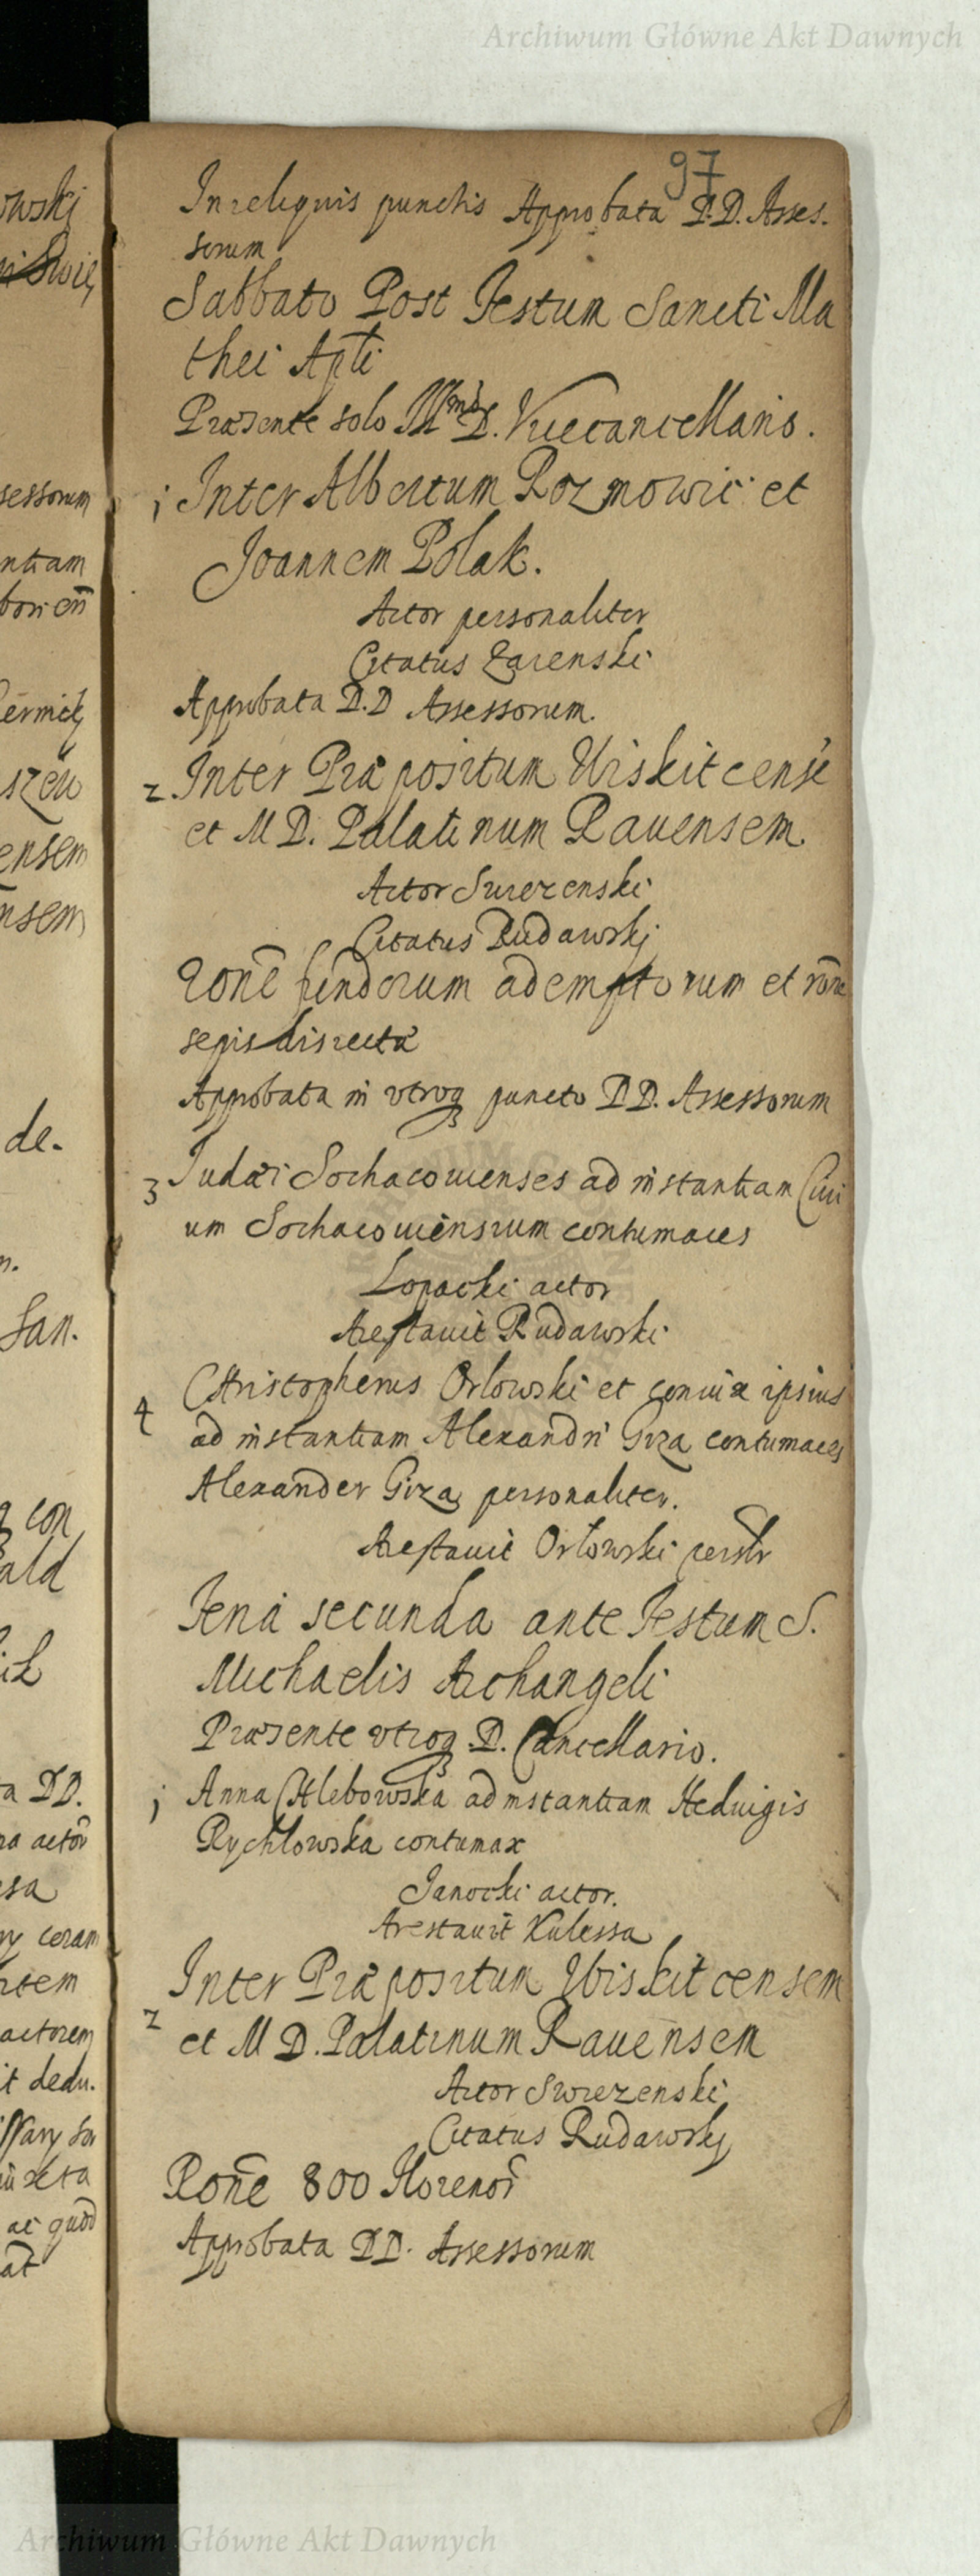 Archiwum Główne Akt Dawnych
97
In reliquis punctis Approbata D.D. Asses-
sorum
Sabbato Post Festum Sancti Ma
thei Apli
Præsente solo Illmo D. Vicecancellario.
1 Inter Albertum Rozmowic et
Joannem Polak.
Actor personaliter
Citatus Zarenski
Approbata D.D Assessorum.
2 Inter Præpositum Wiskitcense
et M D. Palatinum Rauensem
Actor Swiezenski
Citatus Rudawskj
Rone fundorum ademptorum et rone
sepis disiectæ
Approbata in vtroq puncto DD. Assessorum
3 Judæi Sochacouienses ad instantiam Ciui
um Sochacouiensium contumaces
Lopacki actor
Arestauit Rudawski
4 Christopherus Orlowski et coniux ipsius
ad instantiam Alexandri Giza contumaces
Alexander Giza personaliter.
Arestauit Orlowski perslr
Feria secunda ante Festum S.
Michaelis Archangeli
Præsente vtroq D. Cancellario.
1 Anna Chlebowska ad instantiam Heduigis
Rychlowska contumax
Janocki actor.
Arestauit Kulessa
Inter Præpositum Wiskitcensem
2 et M D. Palatinum Rauensem
Actor Swiezenski
Citatus Rudawskj
Rone 800 Florenor
Approbata DD. Assessorum
Archiwum Główne Akt Dawnych